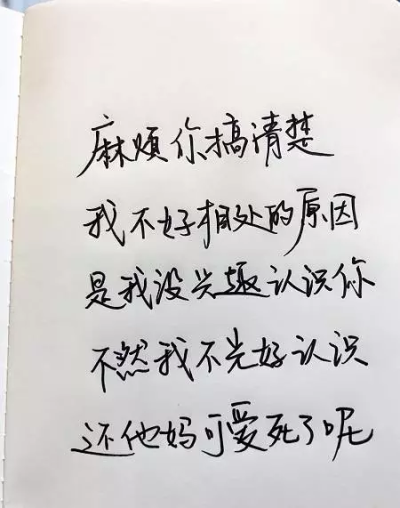 麻烦你搞清楚
我不好相处的原因
是我没兴趣认识你
不然我不光好认识
还他妈可爱死了呢